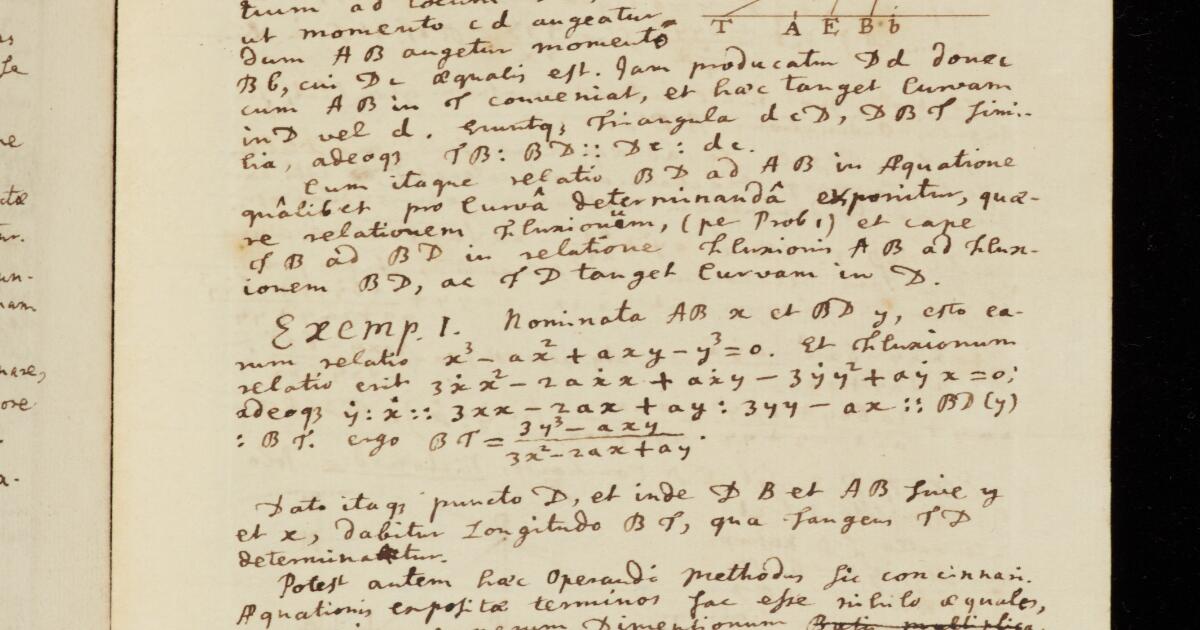 tium ad locum
ut momento cd augeatur
T A E B b
Dum AB augetur momento
Bb, cui Dc æqualis est. Jam producatur Dd donec
cum AB in T conveniat, et hæc tanget Curvam
in D vel d. Eruntq; Triangula dcD, DBT simi-
lia, adeoq; TB : BD :: Dc : dc.
Cum itaque relatio BD ad AB in Æquatione
quâlibet pro Curvâ determinandâ exponitur, quæ-
re relationem Fluxionum, (per Prob 1) et cape
TB ad BD in relatione Fluxionis AB ad Flux-
ionem BD, ac TD tanget Curvam in D.
Exemp. 1. Nominata AB x et BD y, esto ea-
rum relatio x³ − ax² + axy − y³ = 0. Et Fluxionum
relatio erit 3ẋx² − 2aẋx + aẋy − 3ẏy² + aẏx = 0;
adeoq; ẏ : ẋ :: 3xx − 2ax + ay : 3yy − ax :: BD (y)
: BT. ergo BT = 3y³ − axy / 3x² − 2ax + ay.
Dato itaq; puncto D, et inde DB et AB sive y
et x, dabitur Longitudo BT, qua Tangens TD
determinatur.
Potest autem hæc Operandi Methodus sic concinnari.
Æquationis expositæ terminos fac esse nihilo æquales,
Dimentionum